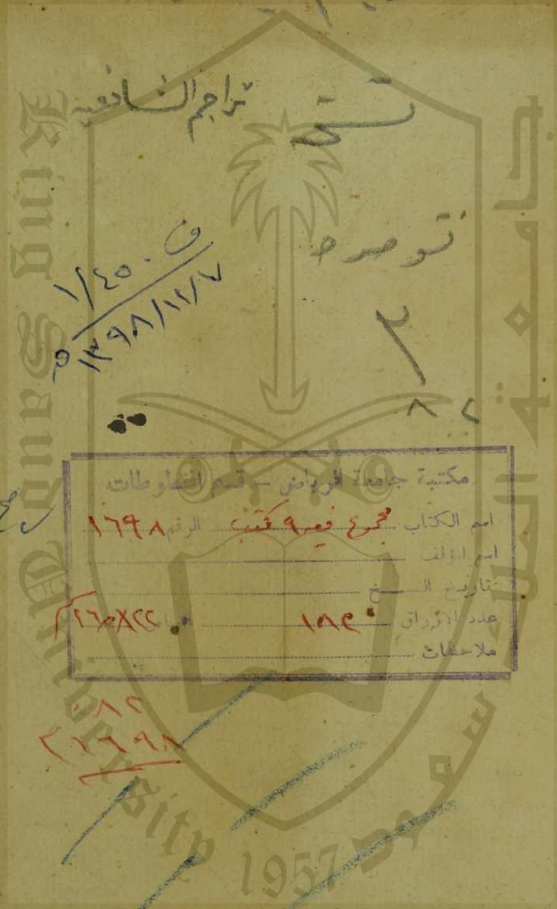 تراجم الشافعية
ق ١/٤٥٠
١٣٩٨/١٢/٧ م
٣
٨٢
مكتبة جامعة الرياض - قسم المخطوطات
اسم الكتاب مجموع فيه ٩ كتب الرقم ١٦٩٨
اسم المؤلف
تاريخ النسخ
عدد الأوراق ١٨٩
ملاحظات
٠٨٢
١٦٩٨
King Saud University 1957
جامعة الملك سعود